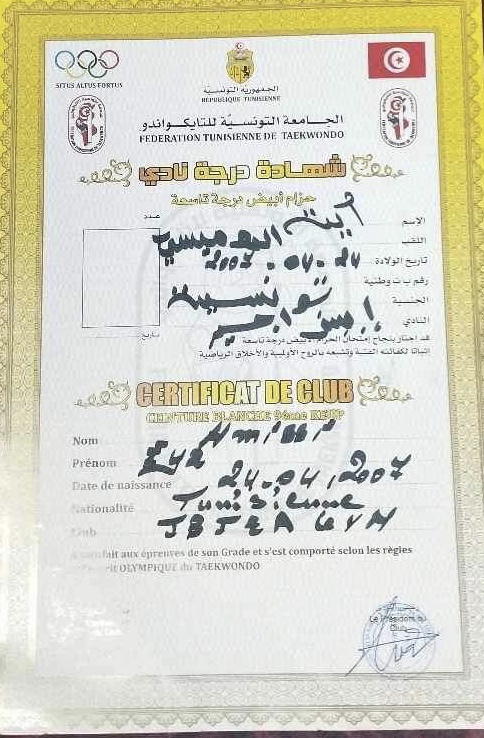 SITUS ALTUS FORTUS
الجمهورية التونسية
REPUBLIQUE TUNISIENNE
الجـامعة التونسيّة للتايكواندو
FEDERATION TUNISIENNE DE TAEKWONDO
شهادة درجة نادي
حزام أبيض درجة تاسعة
عدد
الاسم آية
اللقب
تاريخ الولادة 24.04.2007
رقم ب ت وطنية
الجنسية تونسية
النادي
تاريخ
قد اجتاز بنجاح إمتحان الحزام الأبيض درجة تاسعة
اثباتا لكفاءته الفنية وتشبعه بالروح الأولمبية والأخلاق الرياضية
CERTIFICAT DE CLUB
CEINTURE BLANCHE 9ème KEUP
Nom
Prénom
Date de naissance 24.04.2007
Nationalité Tunisienne
Club GYM
satisfait aux épreuves de son Grade et s'est comporté selon les règles
OLYMPIQUE du TAEKWONDO
Le Président du
Club